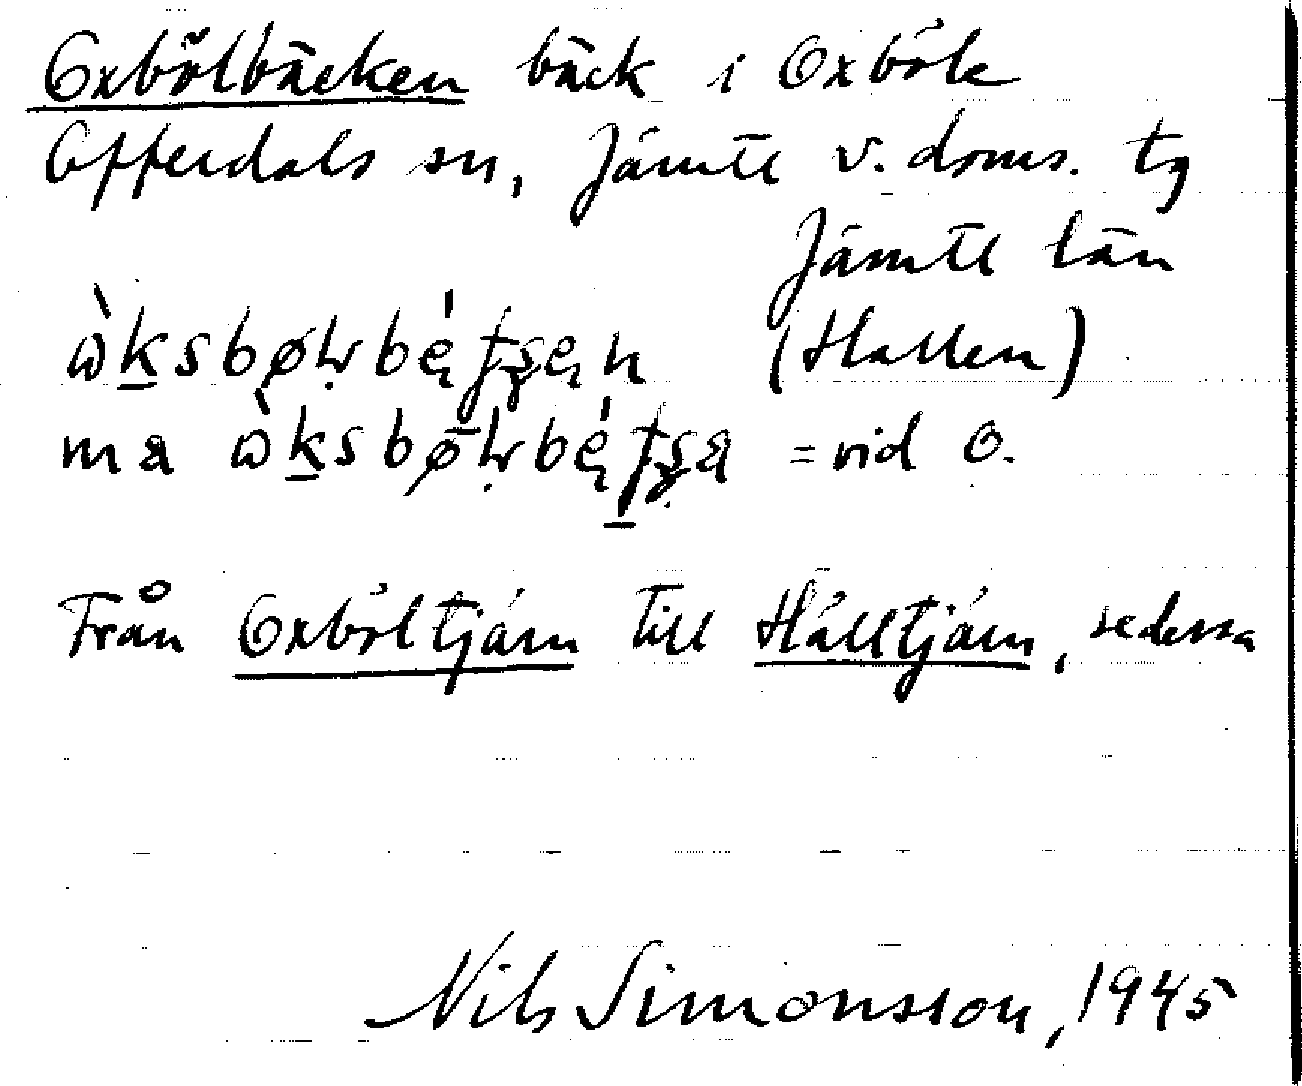 Oxbölbäcken bäck i Oxböle
Offerdals sn, Jämtl v. doms. tg
Jämtl län
(Hallen)
ma = vid O.
Från Oxböltjärn till Hålltjärn, se dessa
Nils Simonsson, 1945